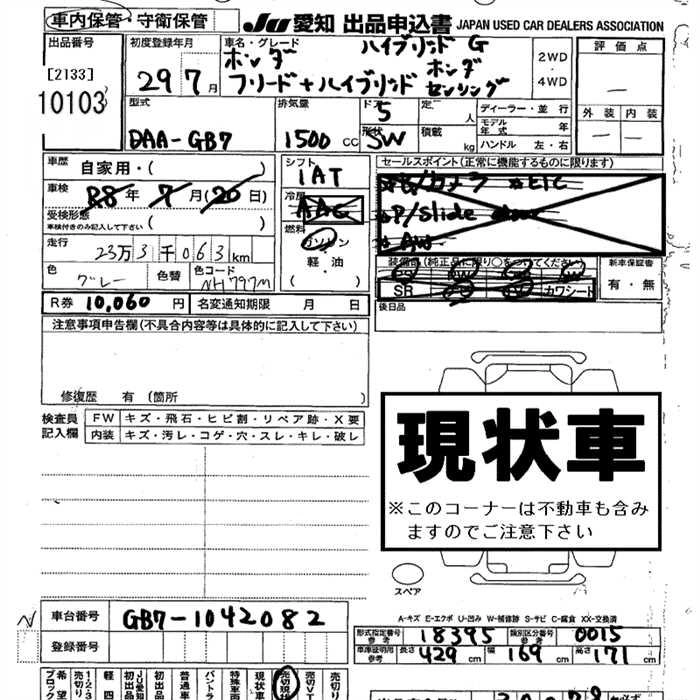 車内保管・守衛保管
JU 愛知 出品申込書 JAPAN USED CAR DEALERS ASSOCIATION
出品番号
[2133]
10103
初度登録年月
29年7月
車名・グレード
ハイブリッド G
ホンダ
ホンダ
フリード+ハイブリッド センシング
2WD
・
4WD
評価点
外装 内装
型式
DAA-GB7
排気量
1500 cc
ド 5
形状 SW
定 人
積載 kg
ディーラー・並行
モデル年式 年
ハンドル 左・右
車歴
自家用・( )
車検
R8年 7月(20日)
受検形態
車検付きのみ記入して下さい
シフト
IAT
冷房
AAC
燃料
ガソリン
・
軽油
・
( )
セールスポイント(正常に機能するものに限ります)
P/Slide
AW
装備品(純正品に限り○をつけてください)
SR カワシート
新車保証書
有・無
後日品
走行
23万3千063km
色
グレー
色替
色コード
NH797M
R券 10,060円
名変通知期限 月 日
注意事項申告欄(不具合内容等は具体的に記入して下さい)
修復歴 有(箇所
検査員
記入欄
FW キズ・飛石・ヒビ割・リペア跡・X要
内装 キズ・汚レ・コゲ・穴・スレ・キレ・破レ
現状車
※このコーナーは不動車も含み
ますのでご注意下さい
スペア
A-キズ E-エクボ U-凹み W-補修跡 S-サビ C-腐食 XX-交換済
車台番号 GB7-1042082
登録番号
形式指定番号 参考 18395
類別区分番号 参考 0015
車庫証明用 参考 長さ 429cm 幅 169cm 高さ 171cm